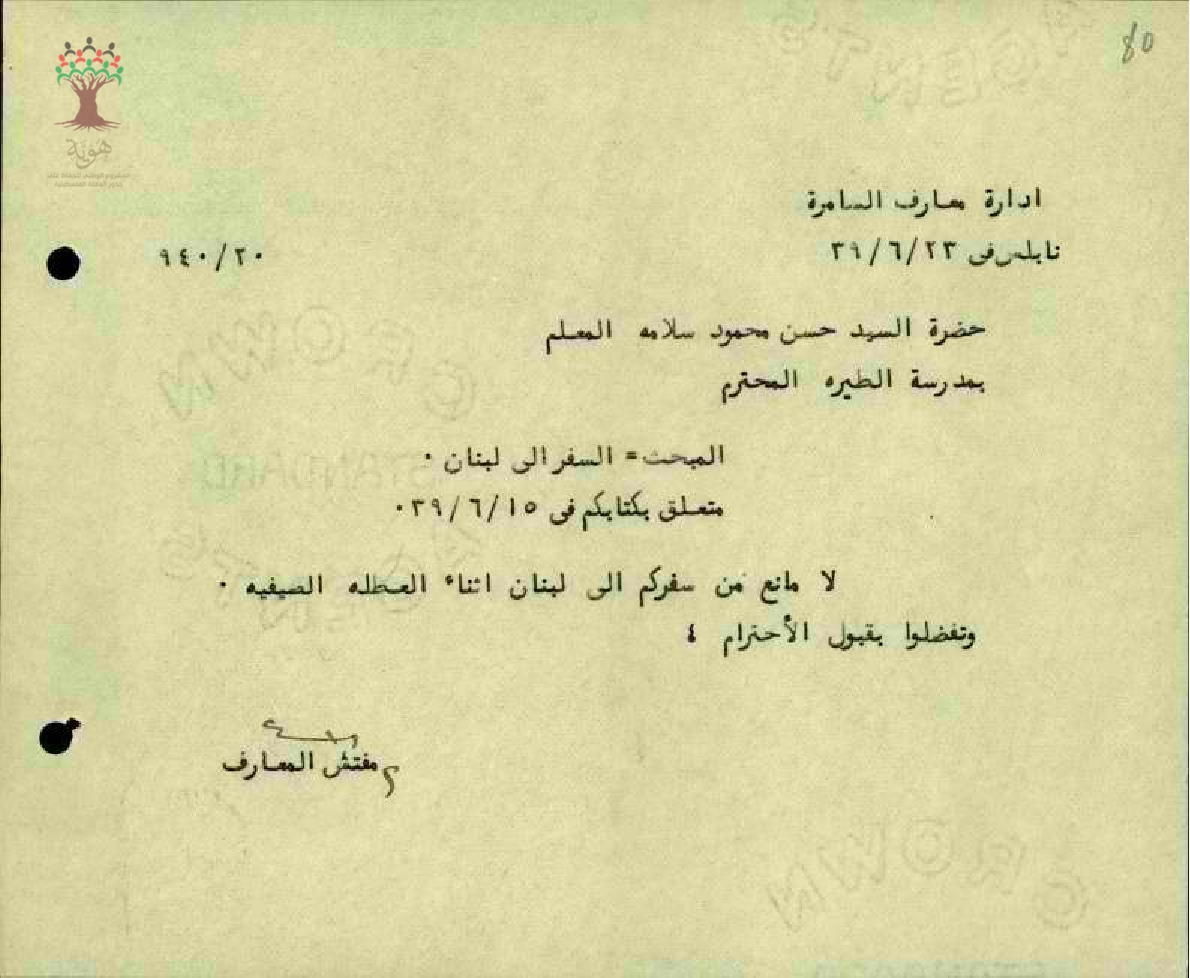 80
هوية
ادارة معارف السامرة
نابلس في ٢٣/٦/٣٩
٩٤٠/٢٠
حضرة السيد حسن محمود سلامه المعلم
بمدرسة الطيره المحترم
المبحث = السفر الى لبنان ٠
متعلق بكتابكم في ١٥/٦/٣٩ ٠
لا مانع من سفركم الى لبنان اثناء العطله الصيفيه ٠
وتفضلوا بقبول الأحترام ٤
مفتش المعارف
CROWN
STANDARD
CROWN